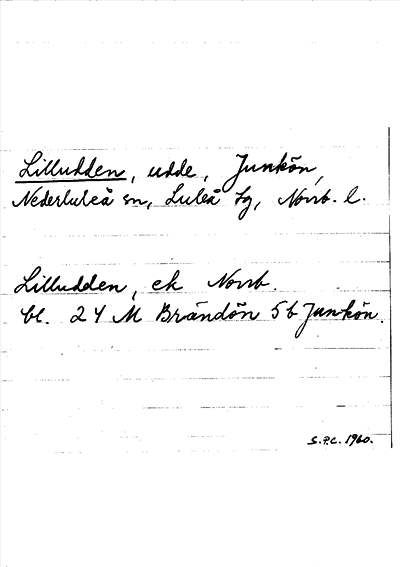 Lilludden, udde, Junkön,
Nederluleå sn, Luleå tg, Norrb. l.
Lilludden, ek Norrb.
bl. 24 M Brändön 5b Junkön.
S.P.C. 1960.